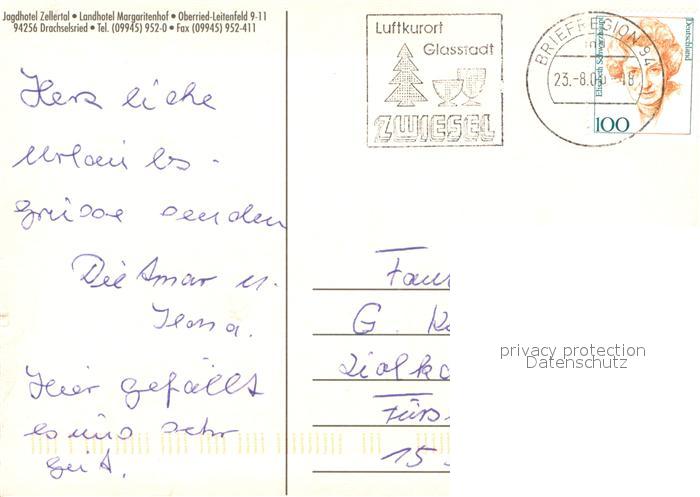 Jagdhotel Zellertal • Landhotel Margaritenhof • Oberried-Leitenfeld 9-11
94256 Drachselsried • Tel. (09945) 952-0 • Fax (09945) 952-411
Luftkurort
Glasstadt
ZWIESEL
BRIEFREGION 94
23.-8.0
Elisabeth Schwarzhaupt
Deutschland
100
Herz liche
Urlau bs-
grüsse senden
Dietmar u.
Ilona.
Hier gefällt
es uns sehr
gut.
Fam
G. K
Ziolko
Fürs
15
privacy protection
Datenschutz